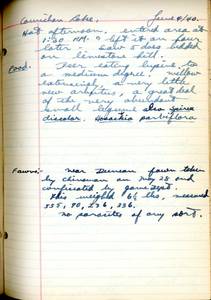 Cowichan Lake. June 4/40.
Hot afternoon; entered area at
1:30 PM. & left it an hour
later - saw 5 does bedded
on limestone hill.
Food. Deer eating lupine to
a medium degree. willow
extensively, a very little
new a great deal
of the very abundant
small legume
parviflora
Fawns: - near Duncan fawn taken
by chinaman on May 28 and
confiscated by game dept.
This weighed 6½ lbs, measured
555, 90, 236, 236.
no parasites of any sort.